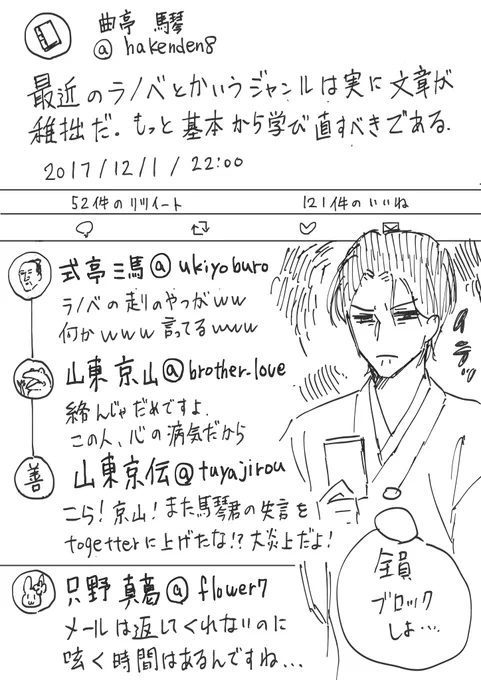 曲亭 馬琴
@hakenden8
最近のラノベとかいうジャンルは実に文章が
稚拙だ。もっと基本から学び直すべきである.
2017/12/1/22:00
52件のリツイート
121件のいいね
式亭三馬@ukiyoburo
ラノベの走りのやつがww
何かwww言ってるwww
山東京山@brother-love
絡んじゃだめですよ.
この人、心の病気だから
善
山東京伝@tuyajirou
こら!京山!また馬琴君の失言を
togetterに上げたな!?大炎上だよ!
只野真葛@flower7
メールは返してくれないのに
呟く時間はあるんですね...
イラッ
全員
ブロック
しよ...